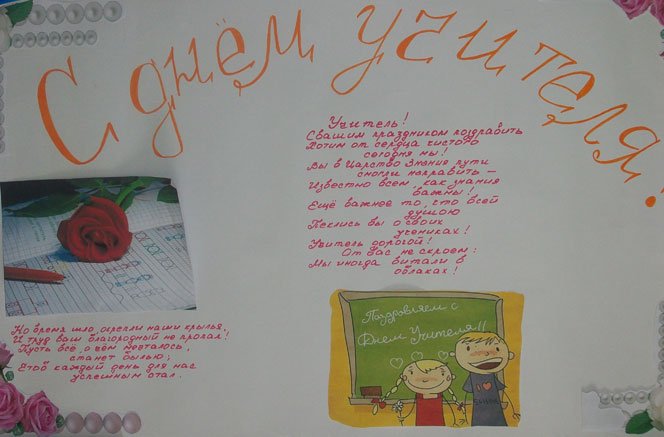 С днём учителя!
Учитель!
С вашим праздником поздравить
Хотим от сердца чистого
сегодня мы!
Вы в Царство Знания пути
смогли направить –
Известно всем, как знания
важны!
Ещё важнее то, что всей
душою
Пеклись вы о своих
учениках!
Учитель дорогой!
От вас не скроем:
Мы иногда витали в
облаках!
Но время шло, окрепли наши крылья,
И труд ваш благородный не пропал!
Пусть всё, о чём мечталось,
станет былью,
Чтоб каждый день для нас
успешным стал.
Поздравляем с
Днем Учителя!!